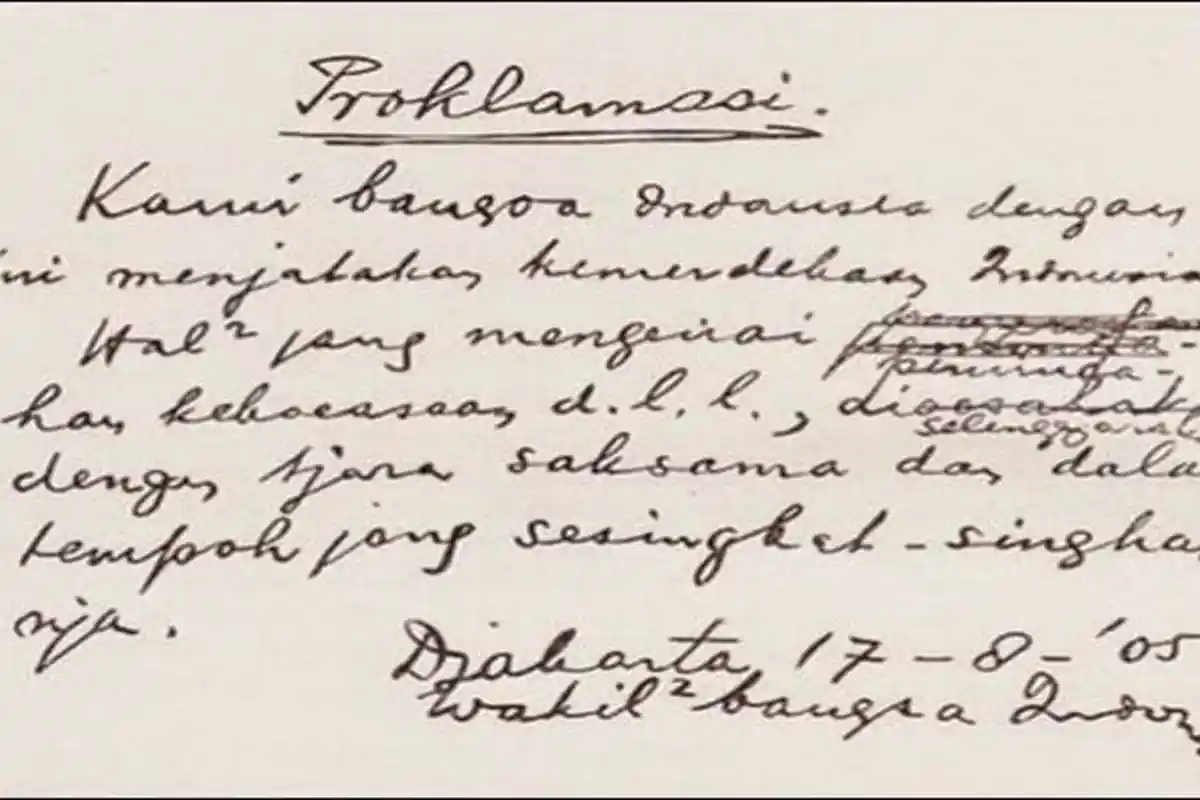 Proklamasi.
Kami bangsa Indonesia dengan
ini menjatakan kemerdekaan Indonesia
Hal² jang mengenai
peminda-
han kekoeasaan d.l.l., dioesahak
selenggarak
dengan tjara saksama dan dala
tempoh jang sesingkat-singka
nja.
Djakarta 17-8-'05
Wakil² bangsa Indon